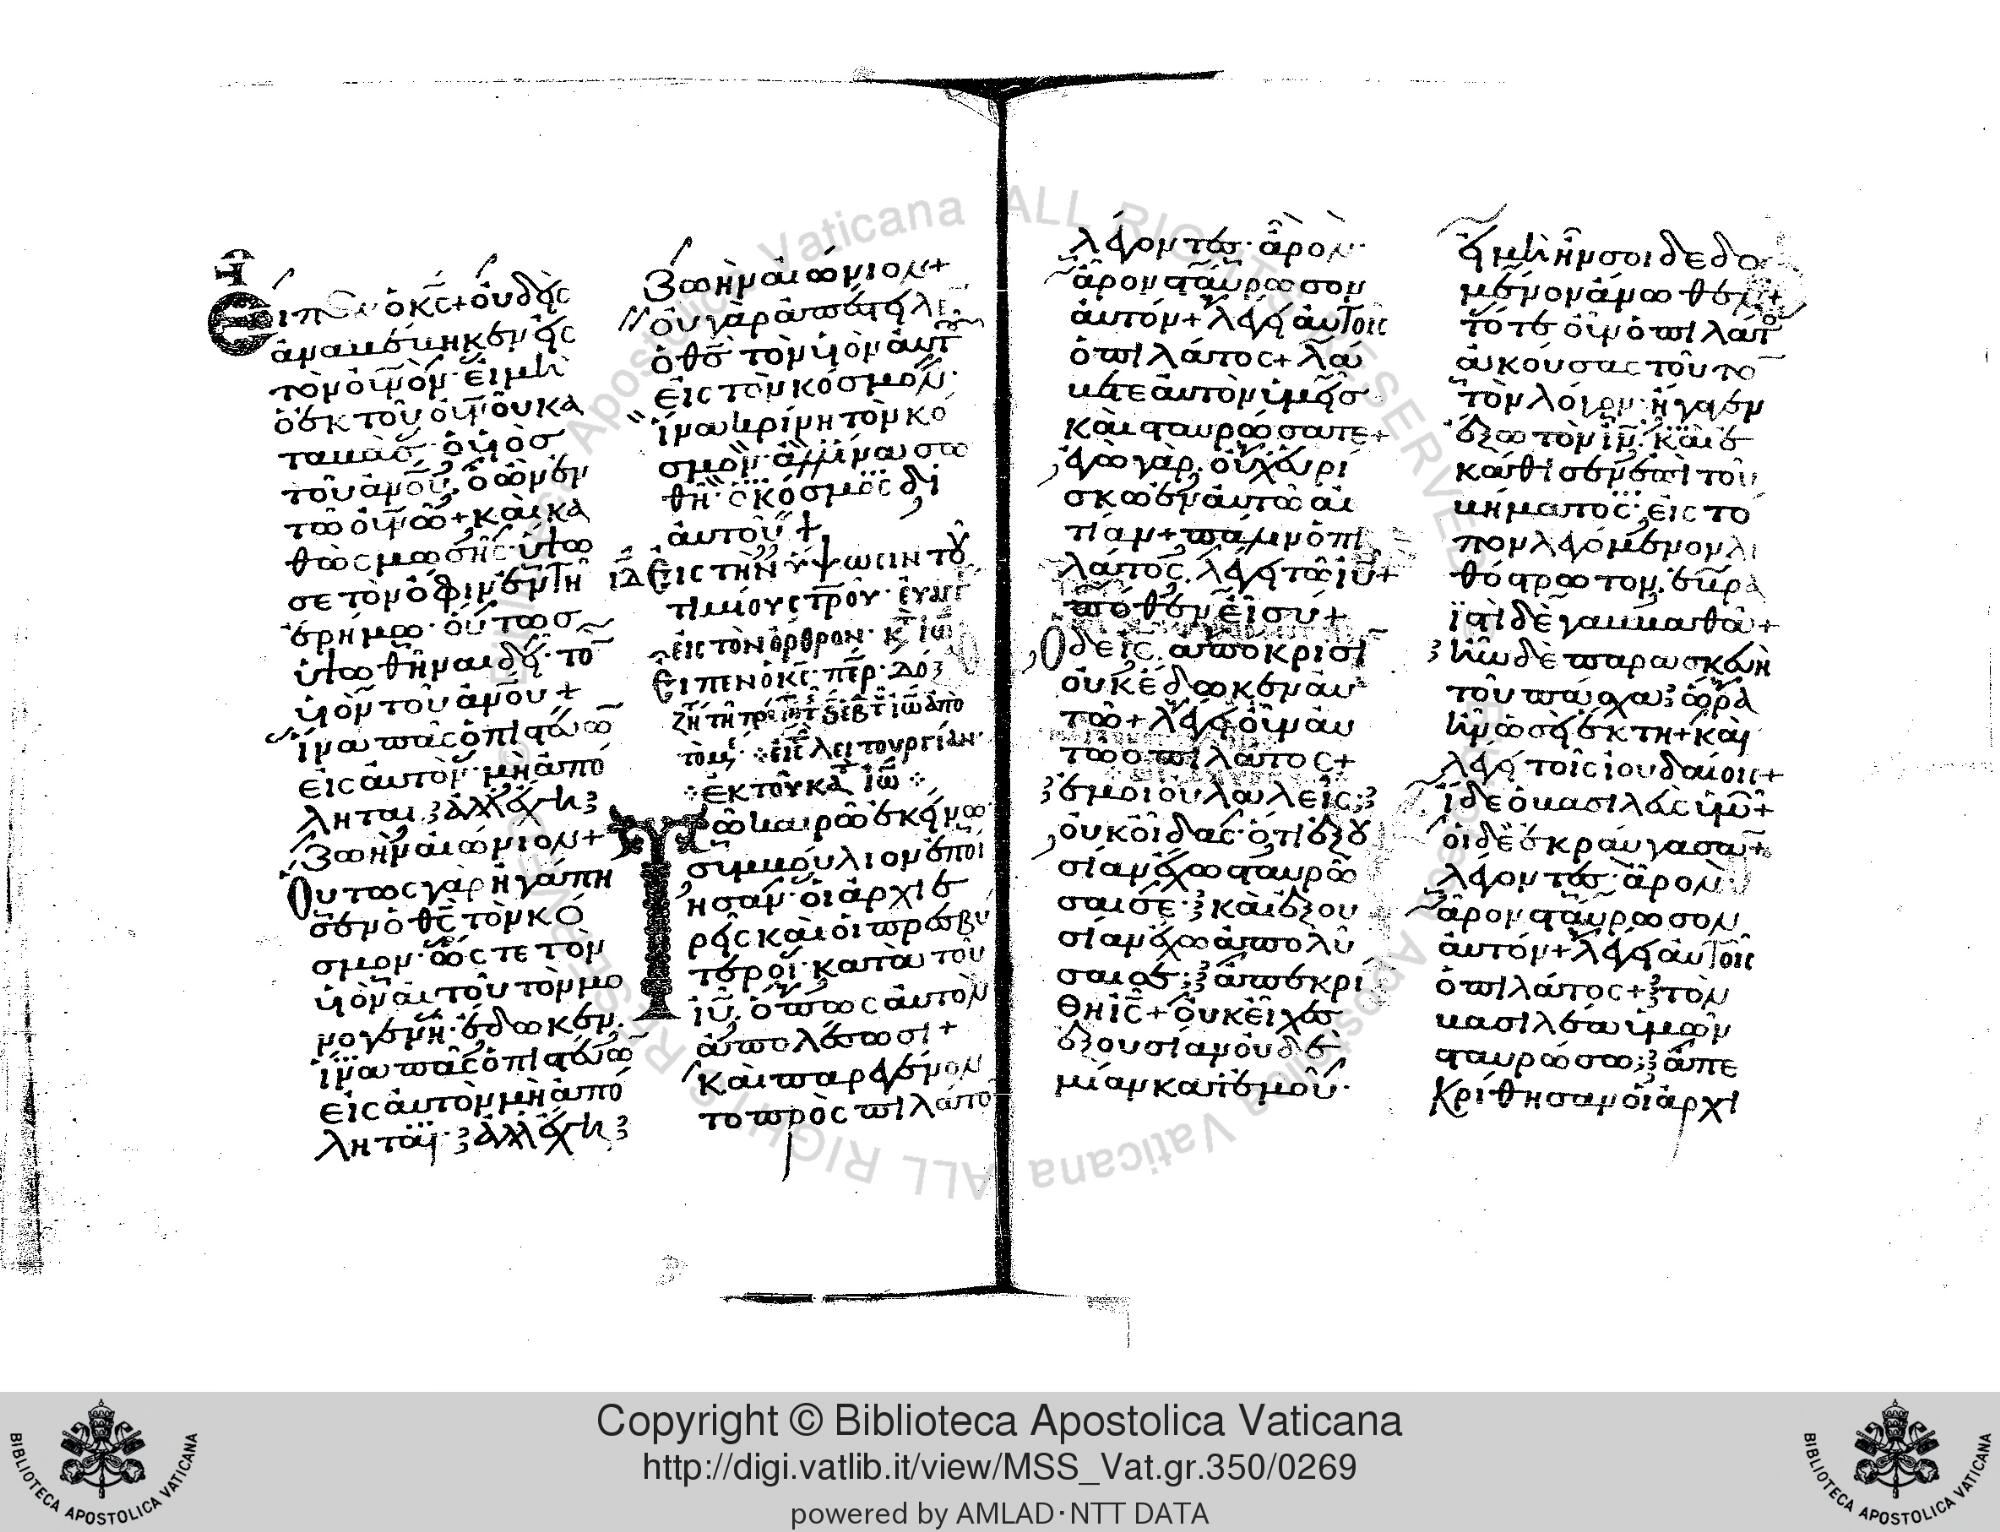 Εἶπεν ὁ κ̅ς̅+ οὐδεὶς
ἀναβέβηκεν εἰς
τὸν ὀυ̅ν̅ὸν· εἰ μὴ
ὁ ἐκ τοῦ ὀυ̅ν̅οῦ κα
ταβάς· ὁ υἱὸσ
τοῦ ἀν̅ο̅υ̅· ὁ ὢν ἐν
τῶ ὀυ̅ν̅ῶ+ καὶ κα
θὼς μωσῆς· ὕψω
σε τὸν ὄφιν ἐν τῆ
ἐρήμω· οὕτωσ
ὑψωθῆναι δεῖ· τὸ̅
υἱὸν τοῦ ἀν̅ο̅υ̅+
ἵνα πᾶς ὁ πιστεύω̅
εἰς αὐτὸν· μὴ ἀπό
ληται· ἀλλ' ἔχη
ζωὴν αἰώνιον+
Οὕτως γὰρ ἠγάπη
σεν ὁ θ̅ς̅ τὸν κό
σμον· ὥστε τὸν
υἱὸν αὐτοῦ τὸν μο
νογενῆ· ἔδωκεν·
ἵνα πᾶς ὁ πιστεύω̅
εἰς αὐτὸν μὴ ἀπό
ληται· ἀλλ' ἔχη
ζωὴν αἰώνιον+
οὐ γὰρ ἀπέστειλε̅
ὁ θ̅σ̅ τὸν υἱὸν αὐτ
εἰς τὸν κόσμον·
ἵνα κρίνη τὸν κό
σμον· ἀλλ' ἵνα σω
θῆ· ὁ κόσμος δι
αὐτοῦ+
ιδ Εἰς τὴν ὕψωσιν τοῦ
τιμίου στ̅ρ̅ου· εὐαγγ
εἰς τὸν ὄρθρον· κτ ἰω
Εἶπεν ὁ κ̅ς̅· π̅ε̅ρ̅· δόξ
ἀπὸ
εἰς λειτουργίαν·
ἐκ τοῦ κατ ἰω
Τῶ καιρῶ ἐκείνω
συμβούλιον ἐποί
ησαν· οἱ ἀρχιε
ρεῖς καὶ οἱ πρεσβύ
τεροι· κατὰ τοῦ
ἰ̅υ̅· ὅπως αὐτὸν
ἀπολέσωσι+
καὶ παρεγένον
το πρὸς πιλάτο̅
λέγοντες· ἆρον·
ἆρον σταύρωσον
αὐτόν+ λέγει αὐτοῖς
ὁ πιλάτος+ λά
βετε αὐτὸν ὑμεῖσ
καὶ σταυρώσατε+
ἐγὼ γὰρ· οὐχ εὑρί
σκω ἐν αὐτῶ αἰ
τίαν+ πάλιν ὁ πι
λάτος· λέγει τῶ ἰ̅υ̅+
πόθεν εἶ σύ+
Ὁ δὲ ἰ̅ς̅· ἀπόκρισι̅
οὐκ ἔδωκεν αὐ
τῶ+ λέγει οὖν αὐ
τῶ ὁ πιλάτος+
ἐμοὶ οὐ λαλεῖς;
οὐκ οἶδας· ὅτι ἐξου
σίαν ἔχω σταυρῶ
σαι σε· καὶ ἐξου
σίαν ἔχω ἀπολῦ
σαι σε; ἀπεκρί
θη ἰ̅ς̅+ οὐκ εἶχες
ἐξουσίαν οὐδε
μίαν κατ' ἐμοῦ·
εἰ μὴ ἦν σοι δεδο
μένον ἄνωθεν+
τότε οὖν ὁ πιλάτος
ἀκούσας τοῦτο̅
τὸν λόγον· ἤγαγεν
ἔξω τὸν ἰ̅ν̅· καὶ ἐ
κάθισεν ἐπὶ τοῦ
βήματος· εἰς τό
πον λεγόμενον λι
θόστρωτον· ἑβρα
ϊστὶ δὲ γαββαθᾶ+
ἦν δὲ παρασκευὴ
τοῦ πάσχα· ὥρα
ἦν ὡσεὶ ἕκτη+ καὶ
λέγει τοῖς ἰουδαίοις+
ἴδε ὁ βασιλεὺς ὑμῶ̅+
οἱ δὲ ἐκραύγασα̅+
λέγοντες· ἆρον
ἆρον σταύρωσον
αὐτόν+ λέγει αὐτοῖς
ὁ πιλάτος+ τὸν
βασιλέα ὑμῶν
σταυρώσω; ἀπε
κρίθησαν οἱ ἀρχι
Copyright © Biblioteca Apostolica Vaticana
http://digi.vatlib.it/view/MSS_Vat.gr.350/0269
powered by AMLAD·NTT DATA
BIBLIOTECA APOSTOLICA VATICANA
BIBLIOTECA APOSTOLICA VATICANA